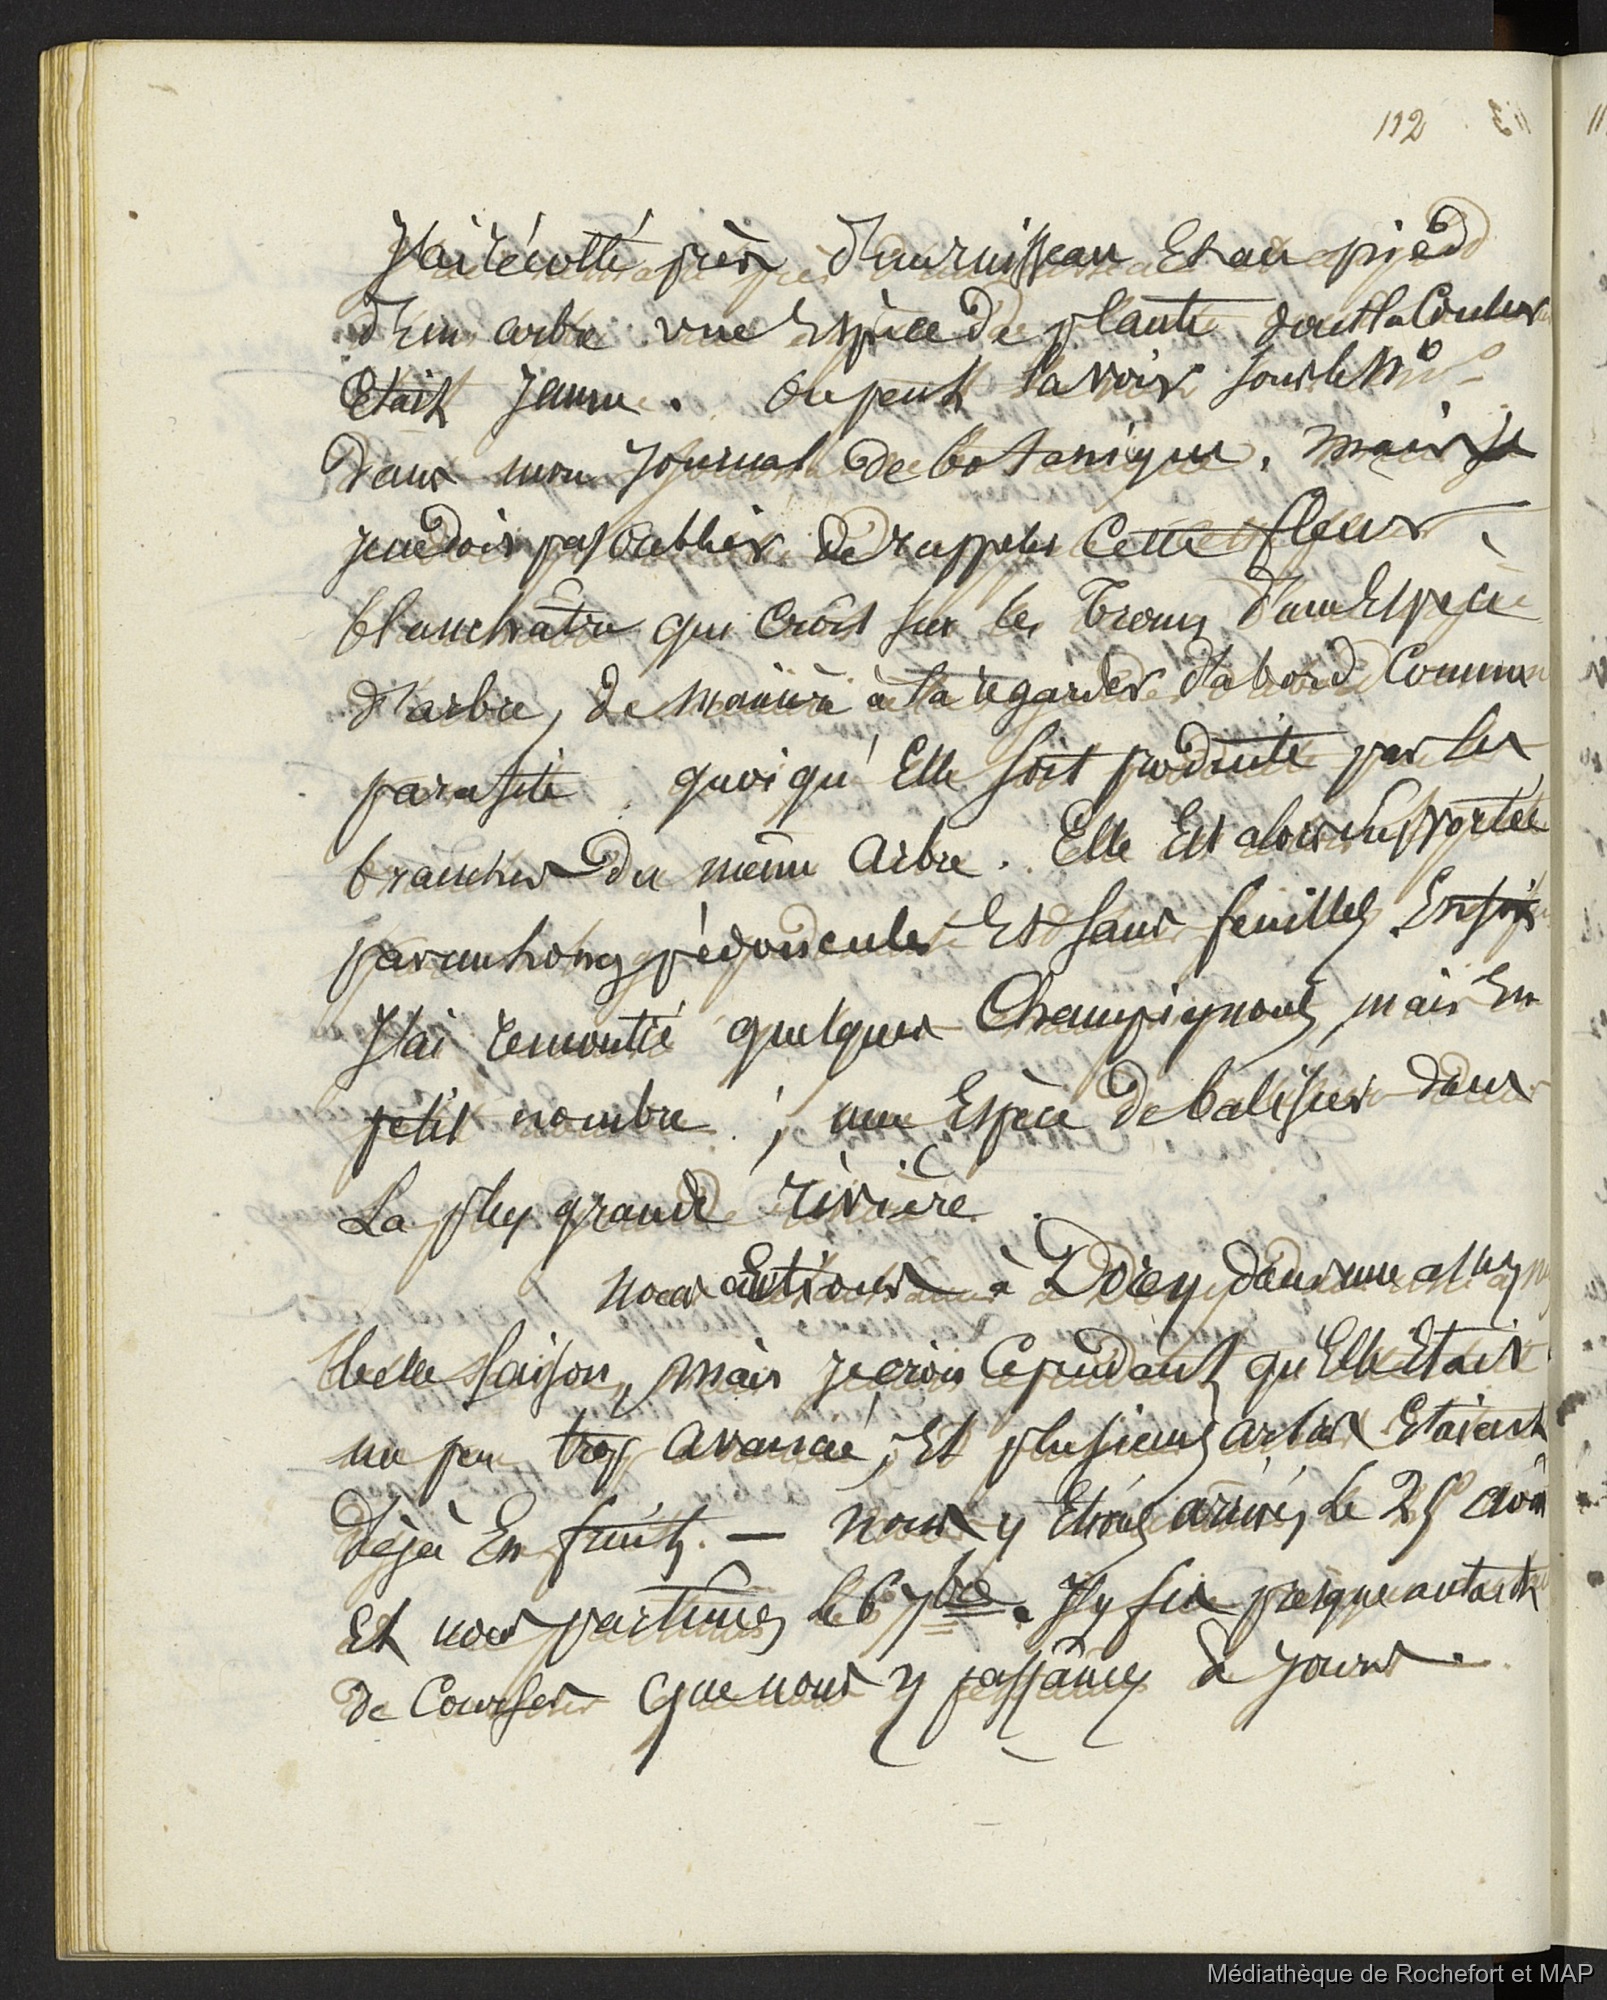 112
J'ai récolté près d'un ruisseau et au pied
d'un arbre une espèce de plante dont la couleur
était jaune. on peut la voir sous le No
dans mon journal de botanique. mais je
je ne dois pas oublier de rappeler cette fleur
blanchâtre qui croît sur les troncs d'une espèce
d'arbre, de manière à la regarder d'abord comme
parasite, quoiqu'elle soit produite par les
branches du même arbre. Elle est alors supportée
par un long pédoncule et sans feuilles. Enfin
J'ai remontré quelques champignons, mais en
petit nombre ; une espèce de balisier dans
La plus grande rivière.
nous étions à Dorey dans une assez
belle saison, mais je crois cependant qu'elle était
un peu trop avancée, et plusieurs arbres étaient
déjà en fruits. — nous y étions arrivés le 25 août
et nous partîmes le 6 7bre. J'y fis presque autant
de courses que nous y passâmes de jours.
Médiathèque de Rochefort et MAP